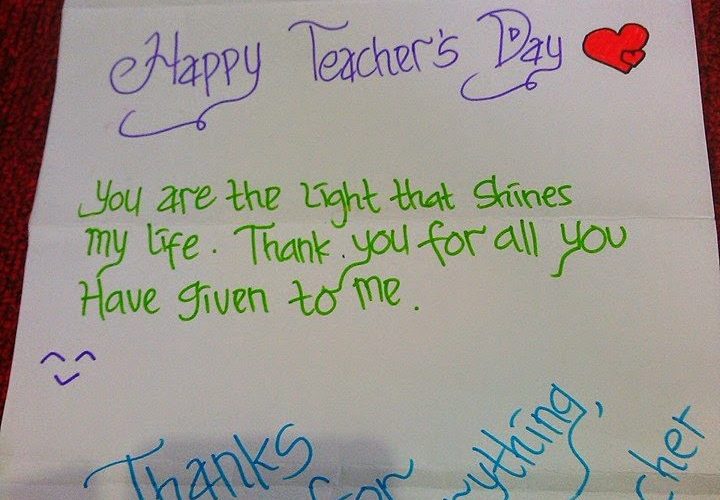 Happy Teacher's Day
You are the Light that Shines
my life. Thank you for all you
Have given to me.
Thanks
for